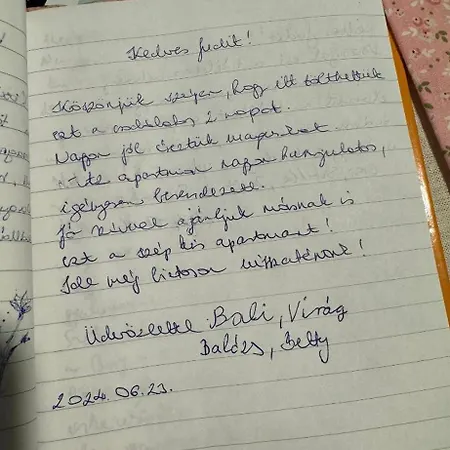 Kedves Judit!
Köszönjük szépen, hogy itt tölthettük
ezt a csodálatos 2 napot.
Nagyon jól éreztük magunkat.
Az apartman nagyon hangulatos,
igényesen berendezett.
Jó szívvel ajánljuk másnak is
ezt a szép kis apartmant!
Ide még biztosan visszatérünk!
Üdvözlettel: Bali, Virág
Balázs, Betty
2024.06.23.